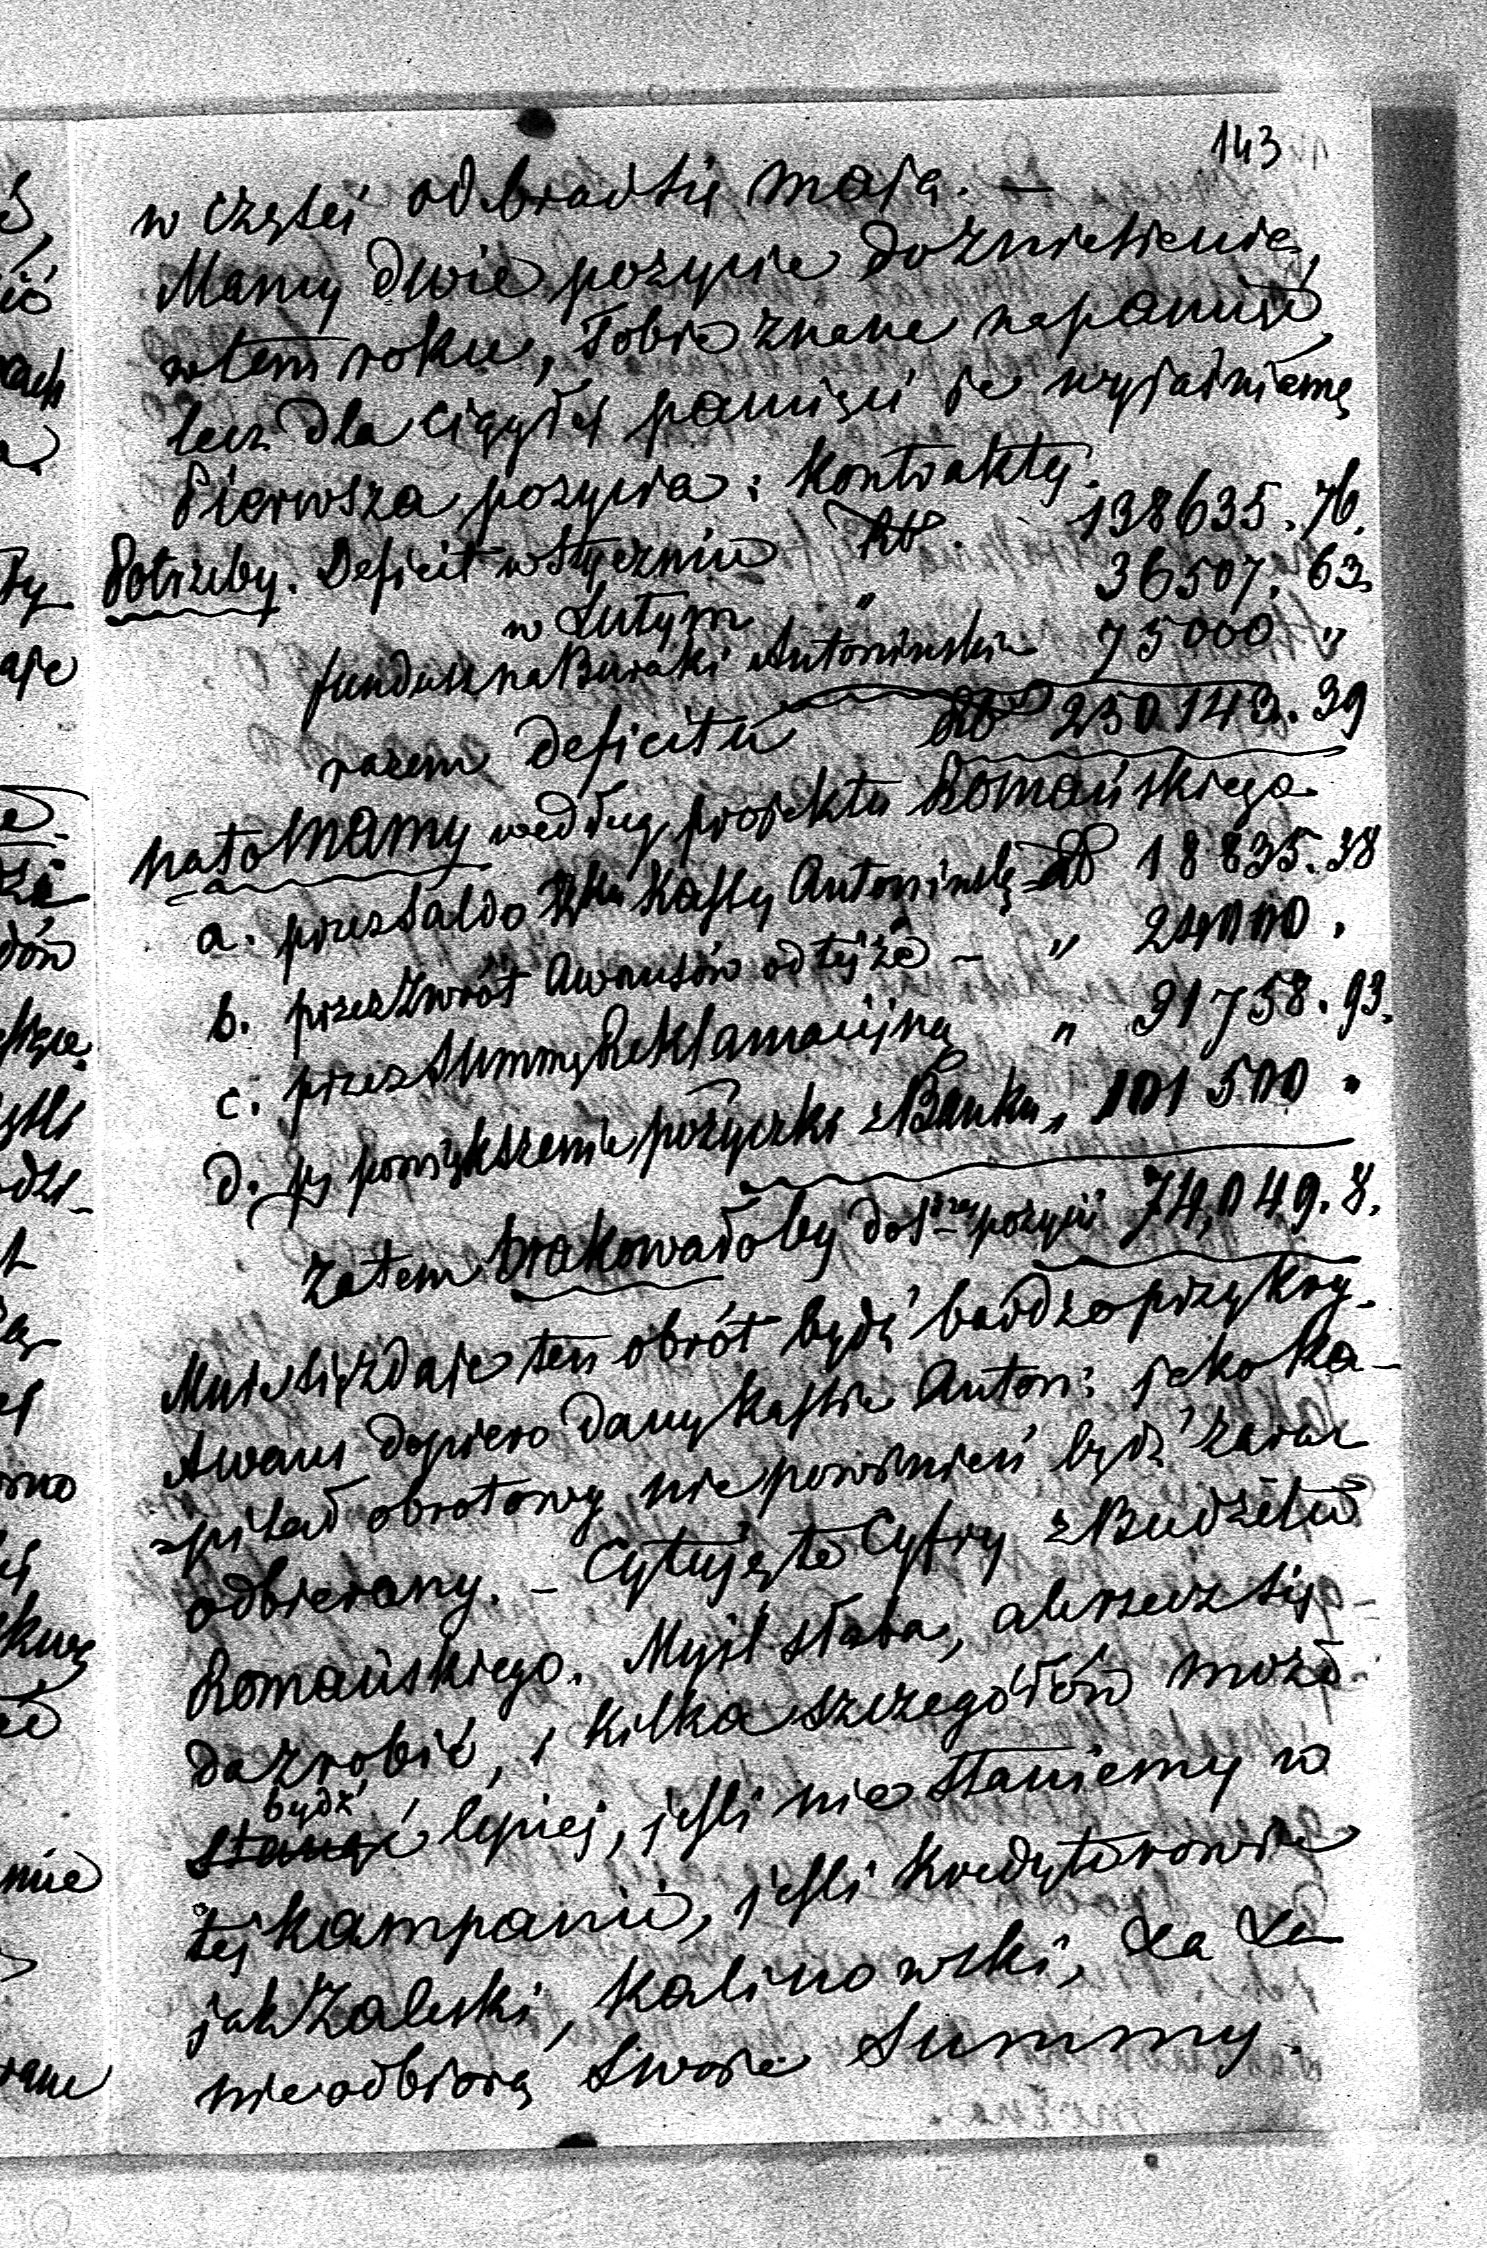 143
w części odbradź się mają. —
Mamy dwie pozycie do zniesienia,
w tem roku, Tobie znane na pamięć,
lecz dla ciągłej pamięci je wyjaśniemy
Pierwsza pozycia: Kontrakty.
Potrzeby. Deficit w Styczniu Rb. 138635.76.
w Lutym " 36507.63.
fundusz na Buraki Antonińskie 75000 "
razem deficitu Rb 250.143.39
na to mamy według projektu Romańskiego
a. przez Saldo Kassy Antonińskiej Rb 18835.38
b. przez zwrót Awansów od tejże – " 24000.
c. przez Summę Reklamacijną " 31758.93.
d. pz powiększenie pożyczki z Banku, 101500 "
Zatem brakowałoby do pozycii 74,049.8.
Mnie się zdaje ten obrót być bardzo przykry.
Awans dopiero dany kassie Anton: jako ka-
=pitał obrotowy nie powinien być zaraz
odbierany. – Cytuję te Cyfry z Budżetu
Romańskiego. Myśl słaba, ale rzecz się
da zrobić, i kilka szczegółów może
być
stanąć lepiej, jeśli nie staniemy w
tej kampanii, jeśli kredytorowie
jak Zaleski, Kalinowski, &a &a
nie odbiorą swoie Summy.